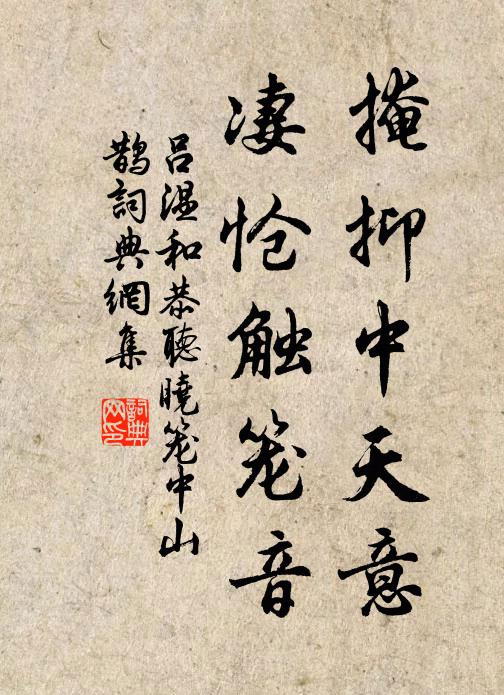 掩抑中天意
凄怆触笼音
吕温和恭聽曉笼中山
鹊詞典網集
詞典
网印